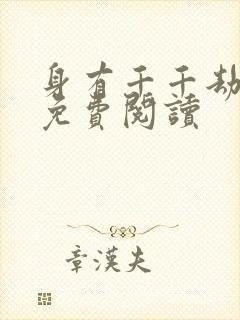 身有千千劫
免費閱讀
章漢夫